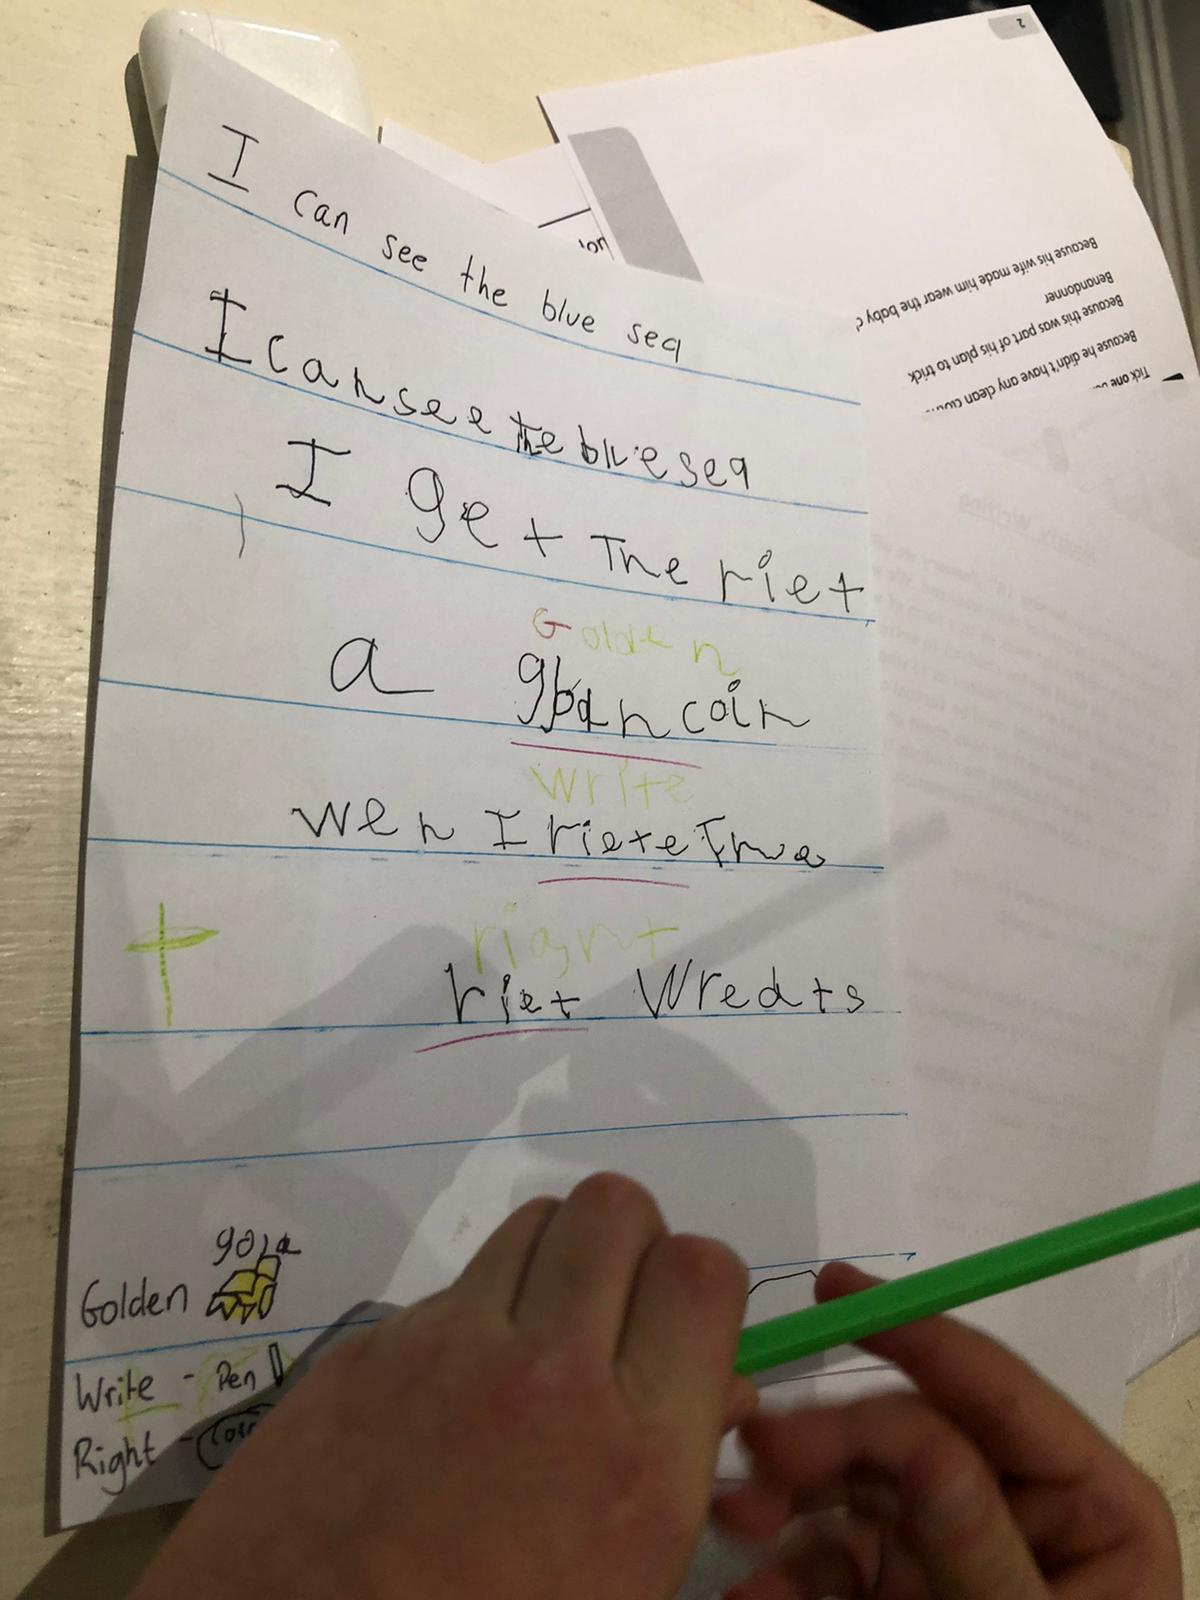 I can see the blue sea
I can see the blue sea
I get The riet
Golden
a gban coin
write
wen I riete The
right
riet Wreats
gold
Golden
Write - Pen
Right -
2
Because his wife made him wear the baby c
Benandonner
Because this was part of his plan to trick
Because he didn't have any clean
Tick one